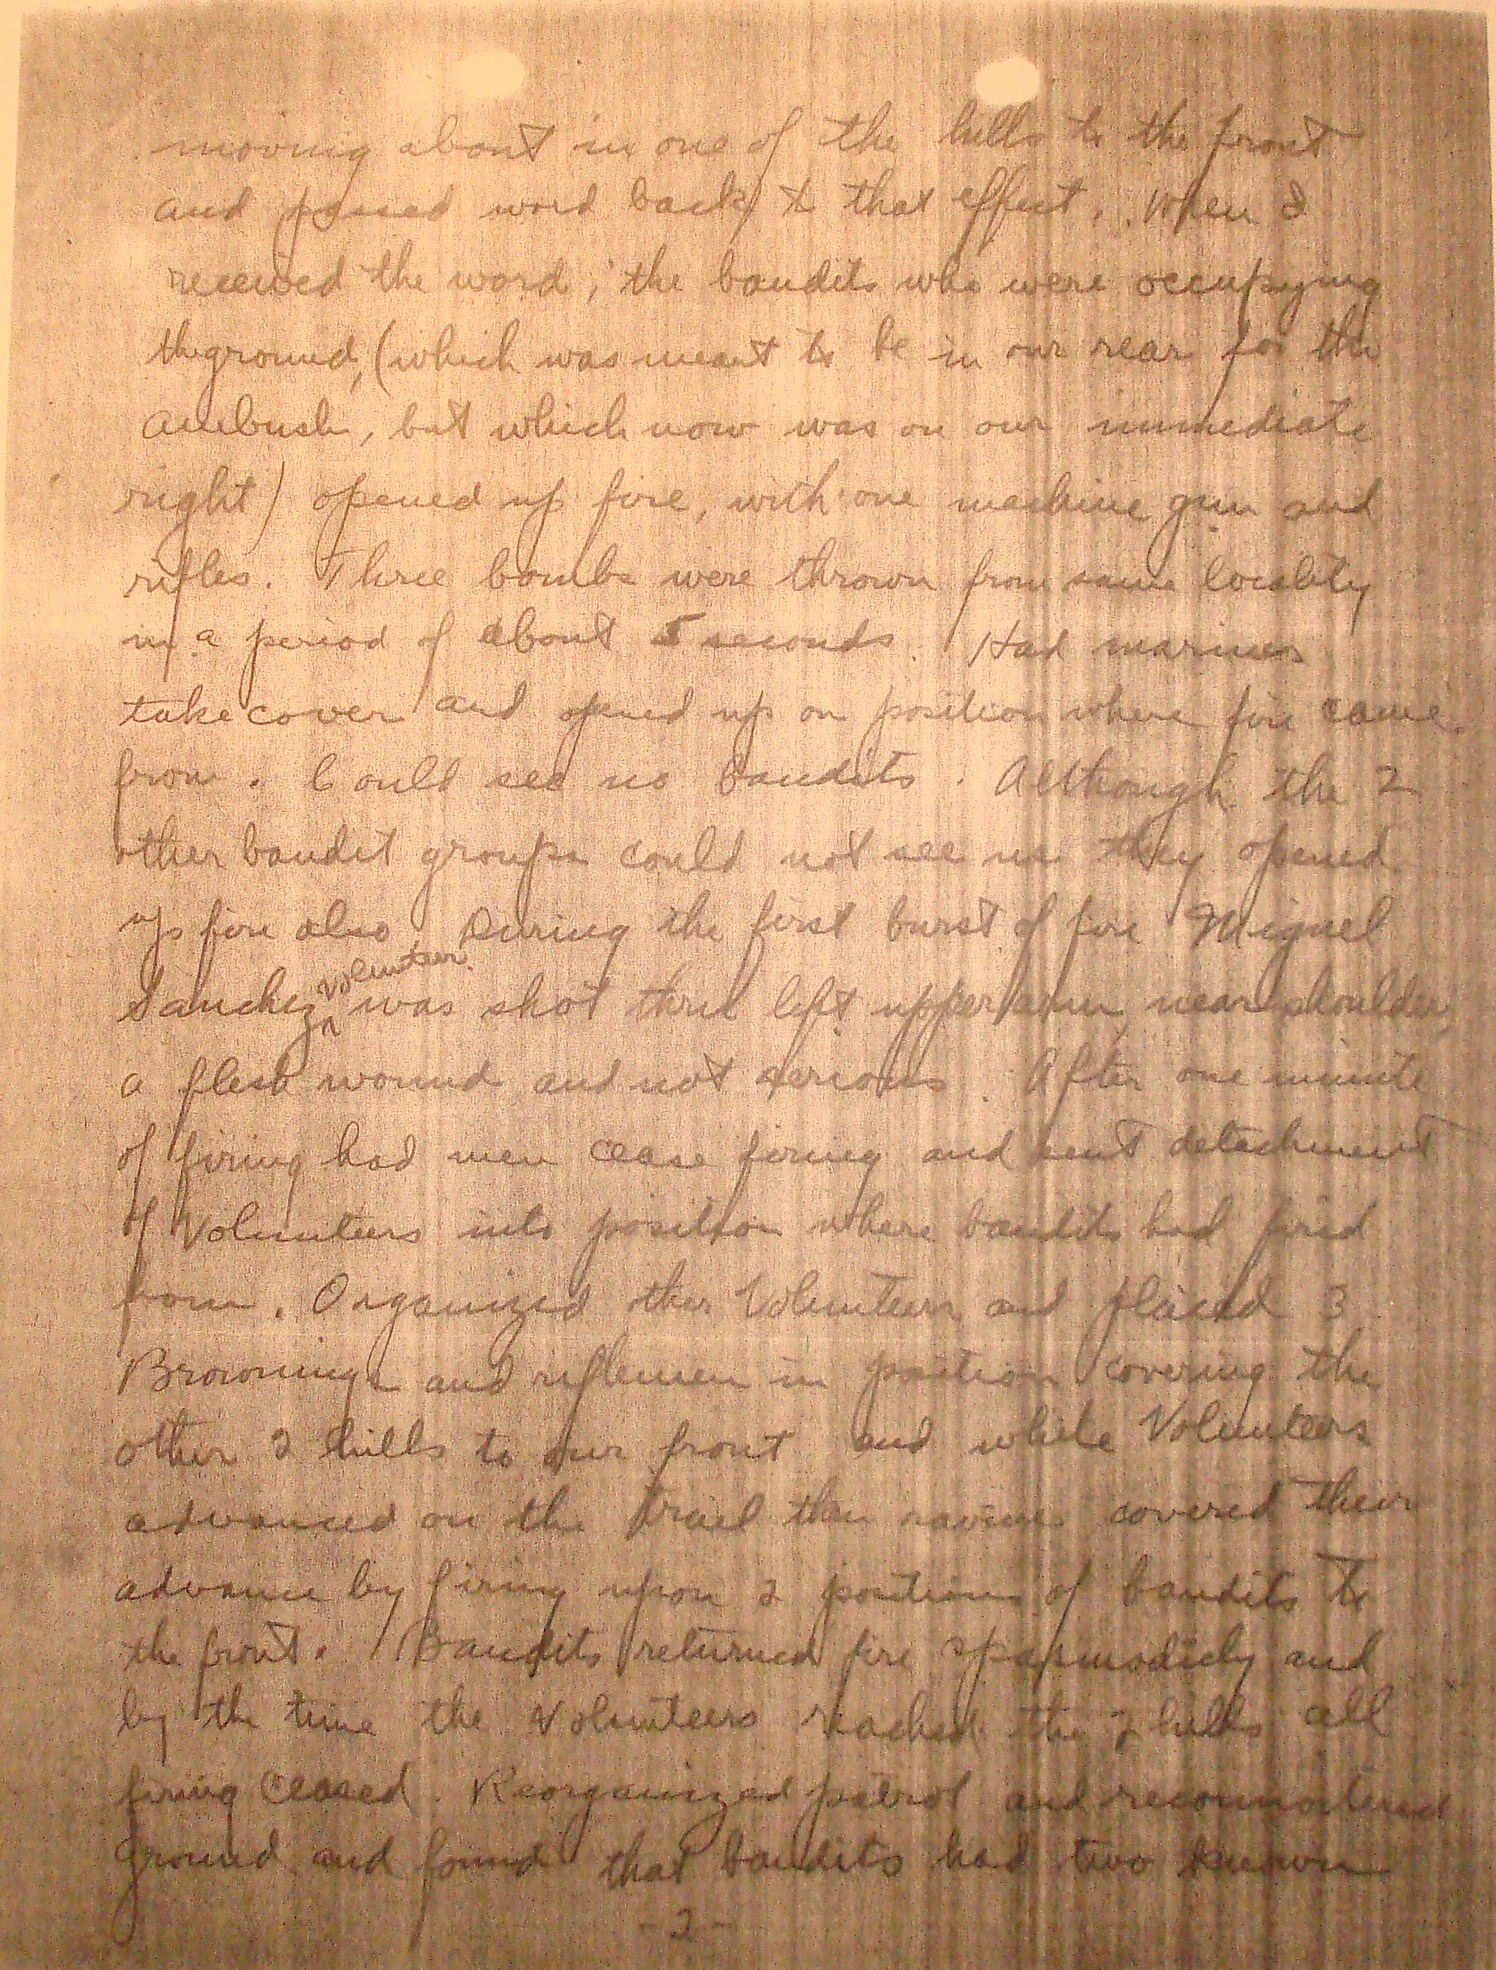 moving about in one of the hills to the front
and passed word back to that effect. When I
received the word, the bandits who were occupying
the ground, (which was meant to be in our rear for the
ambush, but which now was on our immediate
right) opened up fire, with one machine gun and
rifles. Three bombs were thrown from same locality
in a period of about 5 seconds. Had marines
take cover and opened up on position where fire came
from. Could see no bandits. Although the 2
other bandit groups could not see us they opened
up fire also. During the first burst of fire Miguel
Sanchez volunteer was shot thru left upper arm, near shoulder,
a flesh wound and not serious. After one minute
of firing had men cease firing and sent detachment
of Volunteers into position where bandits had fired
from. Organized other Volunteers and placed 3
Brownings and riflemen in position covering the
other 2 hills to our front and while Volunteers
advanced on the trail then covered their
advance by firing upon 2 positions of bandits to
the front. Bandits returned fire spasmodicly and
by the time the Volunteers reached the 2 hills all
firing ceased. Reorganized patrol and reconnoitered
ground and found that bandits had two known
- 2 -